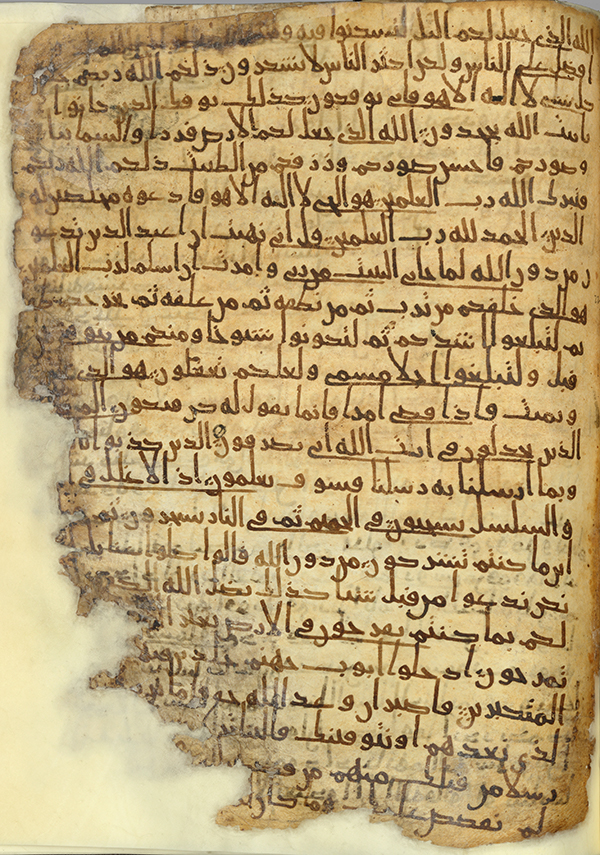 الله الذى جعل لكم اليل لتسكنوا فيه و
و فضل على الناس ولكن اكثر الناس لا يشكرون ذلكم الله ربكم خلق
كل شى لا اله الا هو فانى توفكون كذلك يوفك الذين كانوا
بايت الله يجحدون الله الذى جعل لكم الارض قررا والسما بنا
وصوركم فاحسن صوركم ورزقكم من الطيبت ذلكم الله ربكم
فتبرك الله رب العلمين هو الحى لا اله الا هو فادعوه مخلصين له
الدين الحمد لله رب العلمين قل انى نهيت ان اعبد الذين تدعو
ن من دون الله لما جانى البينت من ربى وامرت ان اسلم لرب العلمين
هو الذى خلقكم من ترب ثم من نطفه ثم من علقه ثم يخرجكم
ثم لتبلغوا اشدكم ثم لتكونوا شيوخا ومنكم من يتوفى من
قبل ولتبلغوا اجلا مسمى ولعلكم تعقلون هو الذى
ويميت فاذا قضى امرا فانما يقول له كن فيكون الم
الذين يجدلون فى ايت الله انى يصرفون الذين كذبوا
وبما ارسلنا به رسلنا فسوف يعلمون اذ الاغلل فى
والسلسل يسحبون فى الحميم ثم فى النار يسجرون ثم
اين ما كنتم تشركون من دون الله قالوا ضلوا عنا بل
نكن ندعوا من قبل شيا كذلك يضل الله
لكم بما كنتم تفرحون فى الارض بغير
تمرحون ادخلوا ابوب جهنم خلدين فيها
المتكبرين فاصبر ان وعد الله حق فاما
الذى نعدهم او نتوفينك فالينا
رسلا من قبلك منهم من
لم نقصص عليك وما كان